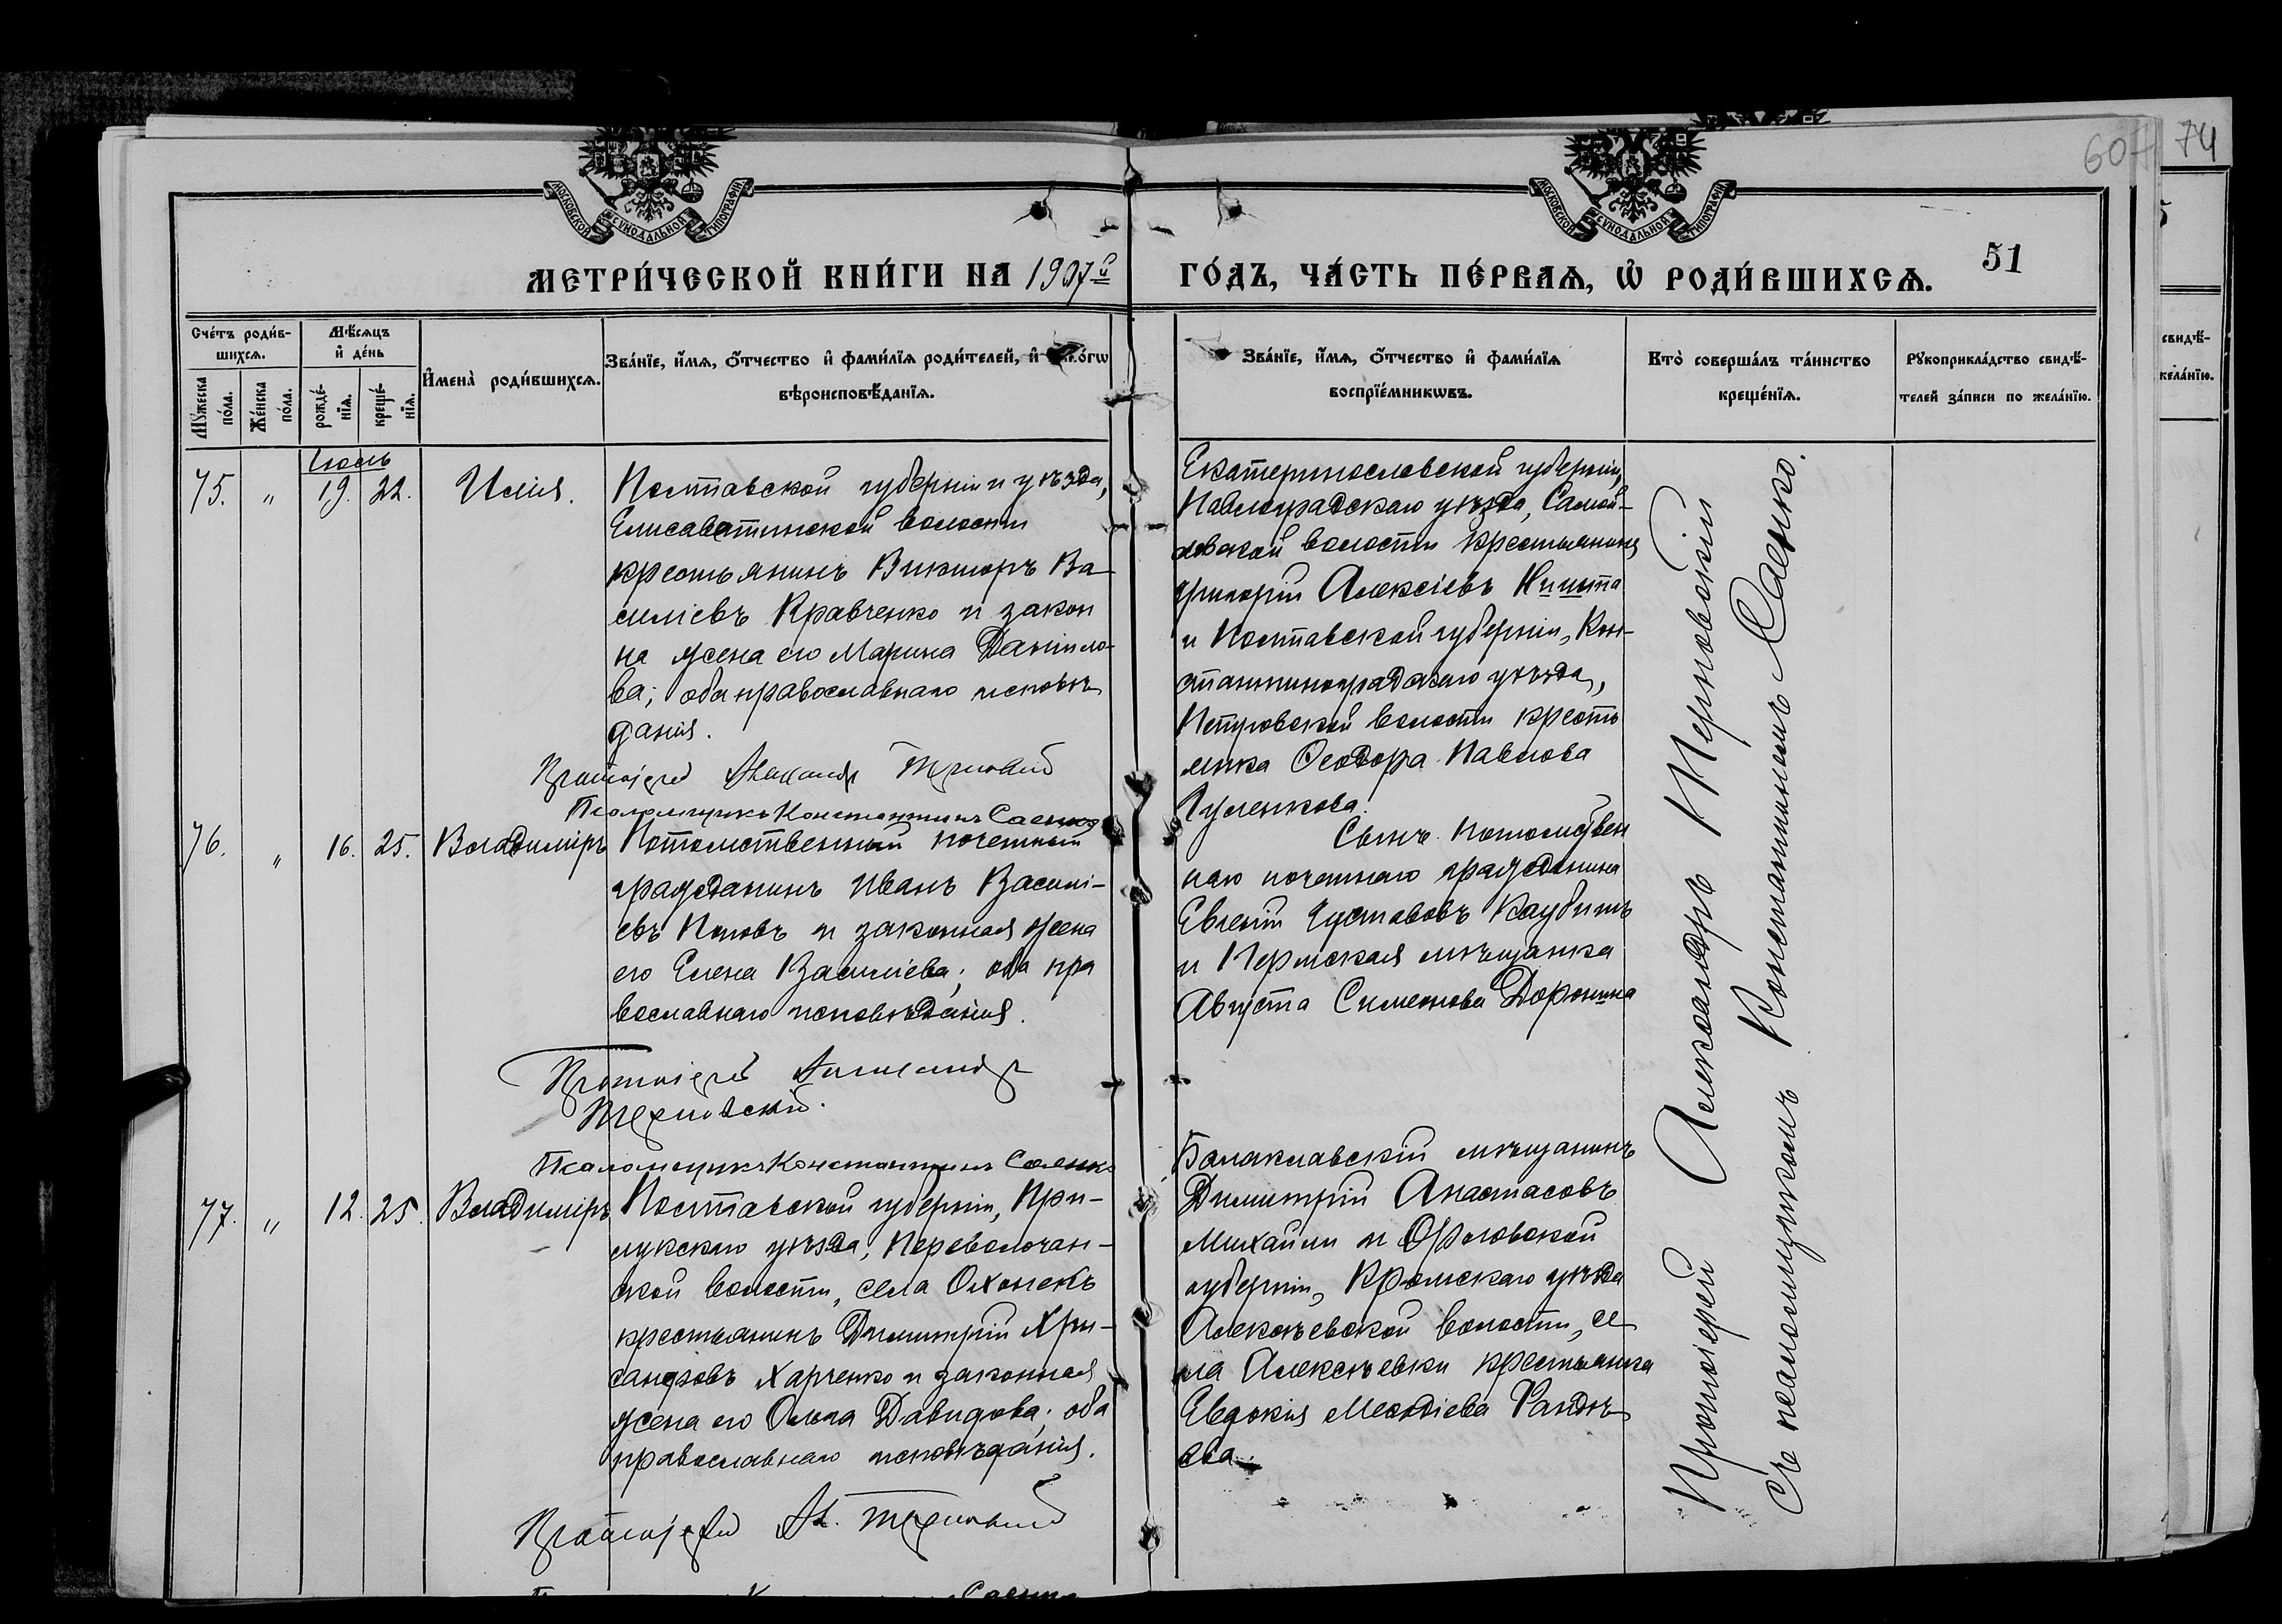 МОСКОВСКОЙ СѴНОДАЛЬНОЙ ТИПОГРАФІИ
МОСКОВСКОЙ СѴНОДАЛЬНОЙ ТИПОГРАФІИ
607 74
51
МЕТРИ́ЧЕСКОЙ КНИ́ГИ НА 1907й ГО́ДЪ, ЧА́СТЬ ПЕ́РВАѦ, Ѡ҆ РОДИ́ВШИХСѦ.
Сче́тъ роди́в-
шихсѧ.
Мꙋ́жеска по́ла.
Же́нска по́ла.
Мѣ́сѧцъ
и҆ де́нь
рожде́-
нїѧ.
креще́-
нїѧ.
И҆мена̀ роди́вшихсѧ.
Зва́нїе, и҆́мѧ, ѻ҆́тчество и҆ фами́лїѧ роди́телей, и҆
вѣроисповѣ́данїѧ.
Зва́нїе, и҆́мѧ, ѻ҆́тчество и҆ фами́лїѧ
воспрїе́мникѡвъ.
Кто̀ соверша́лъ та́инство
креще́нїѧ.
Рꙋкоприкла́дство свидѣ́-
телей за́писи по жела́нїю.
свидѣ́-
жела́нїю.
Іюль
75. " 19. 22. Илія.
Полтавской губерніи и уѣзда,
Елисаветинской волости
крестьянинъ Викторъ Ва-
силіевъ Кравченко и закон
на жена его Марина Даніило-
ва; оба православнаго исповѣ
данія.
Протоіерей Александр Терновский
Псаломщикъ Константинъ Саенко
Екатеринославской губерніи,
Павлоградскаго уѣзда, Самой-
ловской волости крестьянинъ
Григорій Алексіевъ
и Полтавской губерніи, Кон-
стантиноградскаго уѣзда,
Петровской волости кресть
янка Ѳеодора Павлова
Гуленкова.
76. " 16. 25. Владиміръ
Потомственный почетный
гражданинъ Иванъ Василі-
евъ Поповъ и законная жена
его Елена Василіева; оба пра
вославнаго исповѣданія.
Протоіерей Александр
Терновскій.
Псаломщикъ Константинъ Саенко
Сынъ потомствен
наго почетнаго гражданина
Евгеній Густавовъ
и Пермская мѣщанка
Августа Симеонова Доронина
77. " 12. 25. Владиміръ
Полтавской губерніи, При-
лукскаго уѣзда, Переволочан-
ской волости, села Охонекъ
крестьянинъ Димитрій Хри-
санфовъ Харченко и законная
жена его Ольга Давидова; оба
православнаго исповѣданія.
Протоіерей Ал. Терновский
Балаклавскій мѣщанинъ
Димитрій Анастасовъ
Михайли и Орловской
губерніи, Кромскаго уѣзда
Алексѣевской волости, се
ла Алексѣевки крестьянка
Евдокія
Протоіерей Александръ Терновскій
съ псаломщикомъ Константиномъ Саенко.